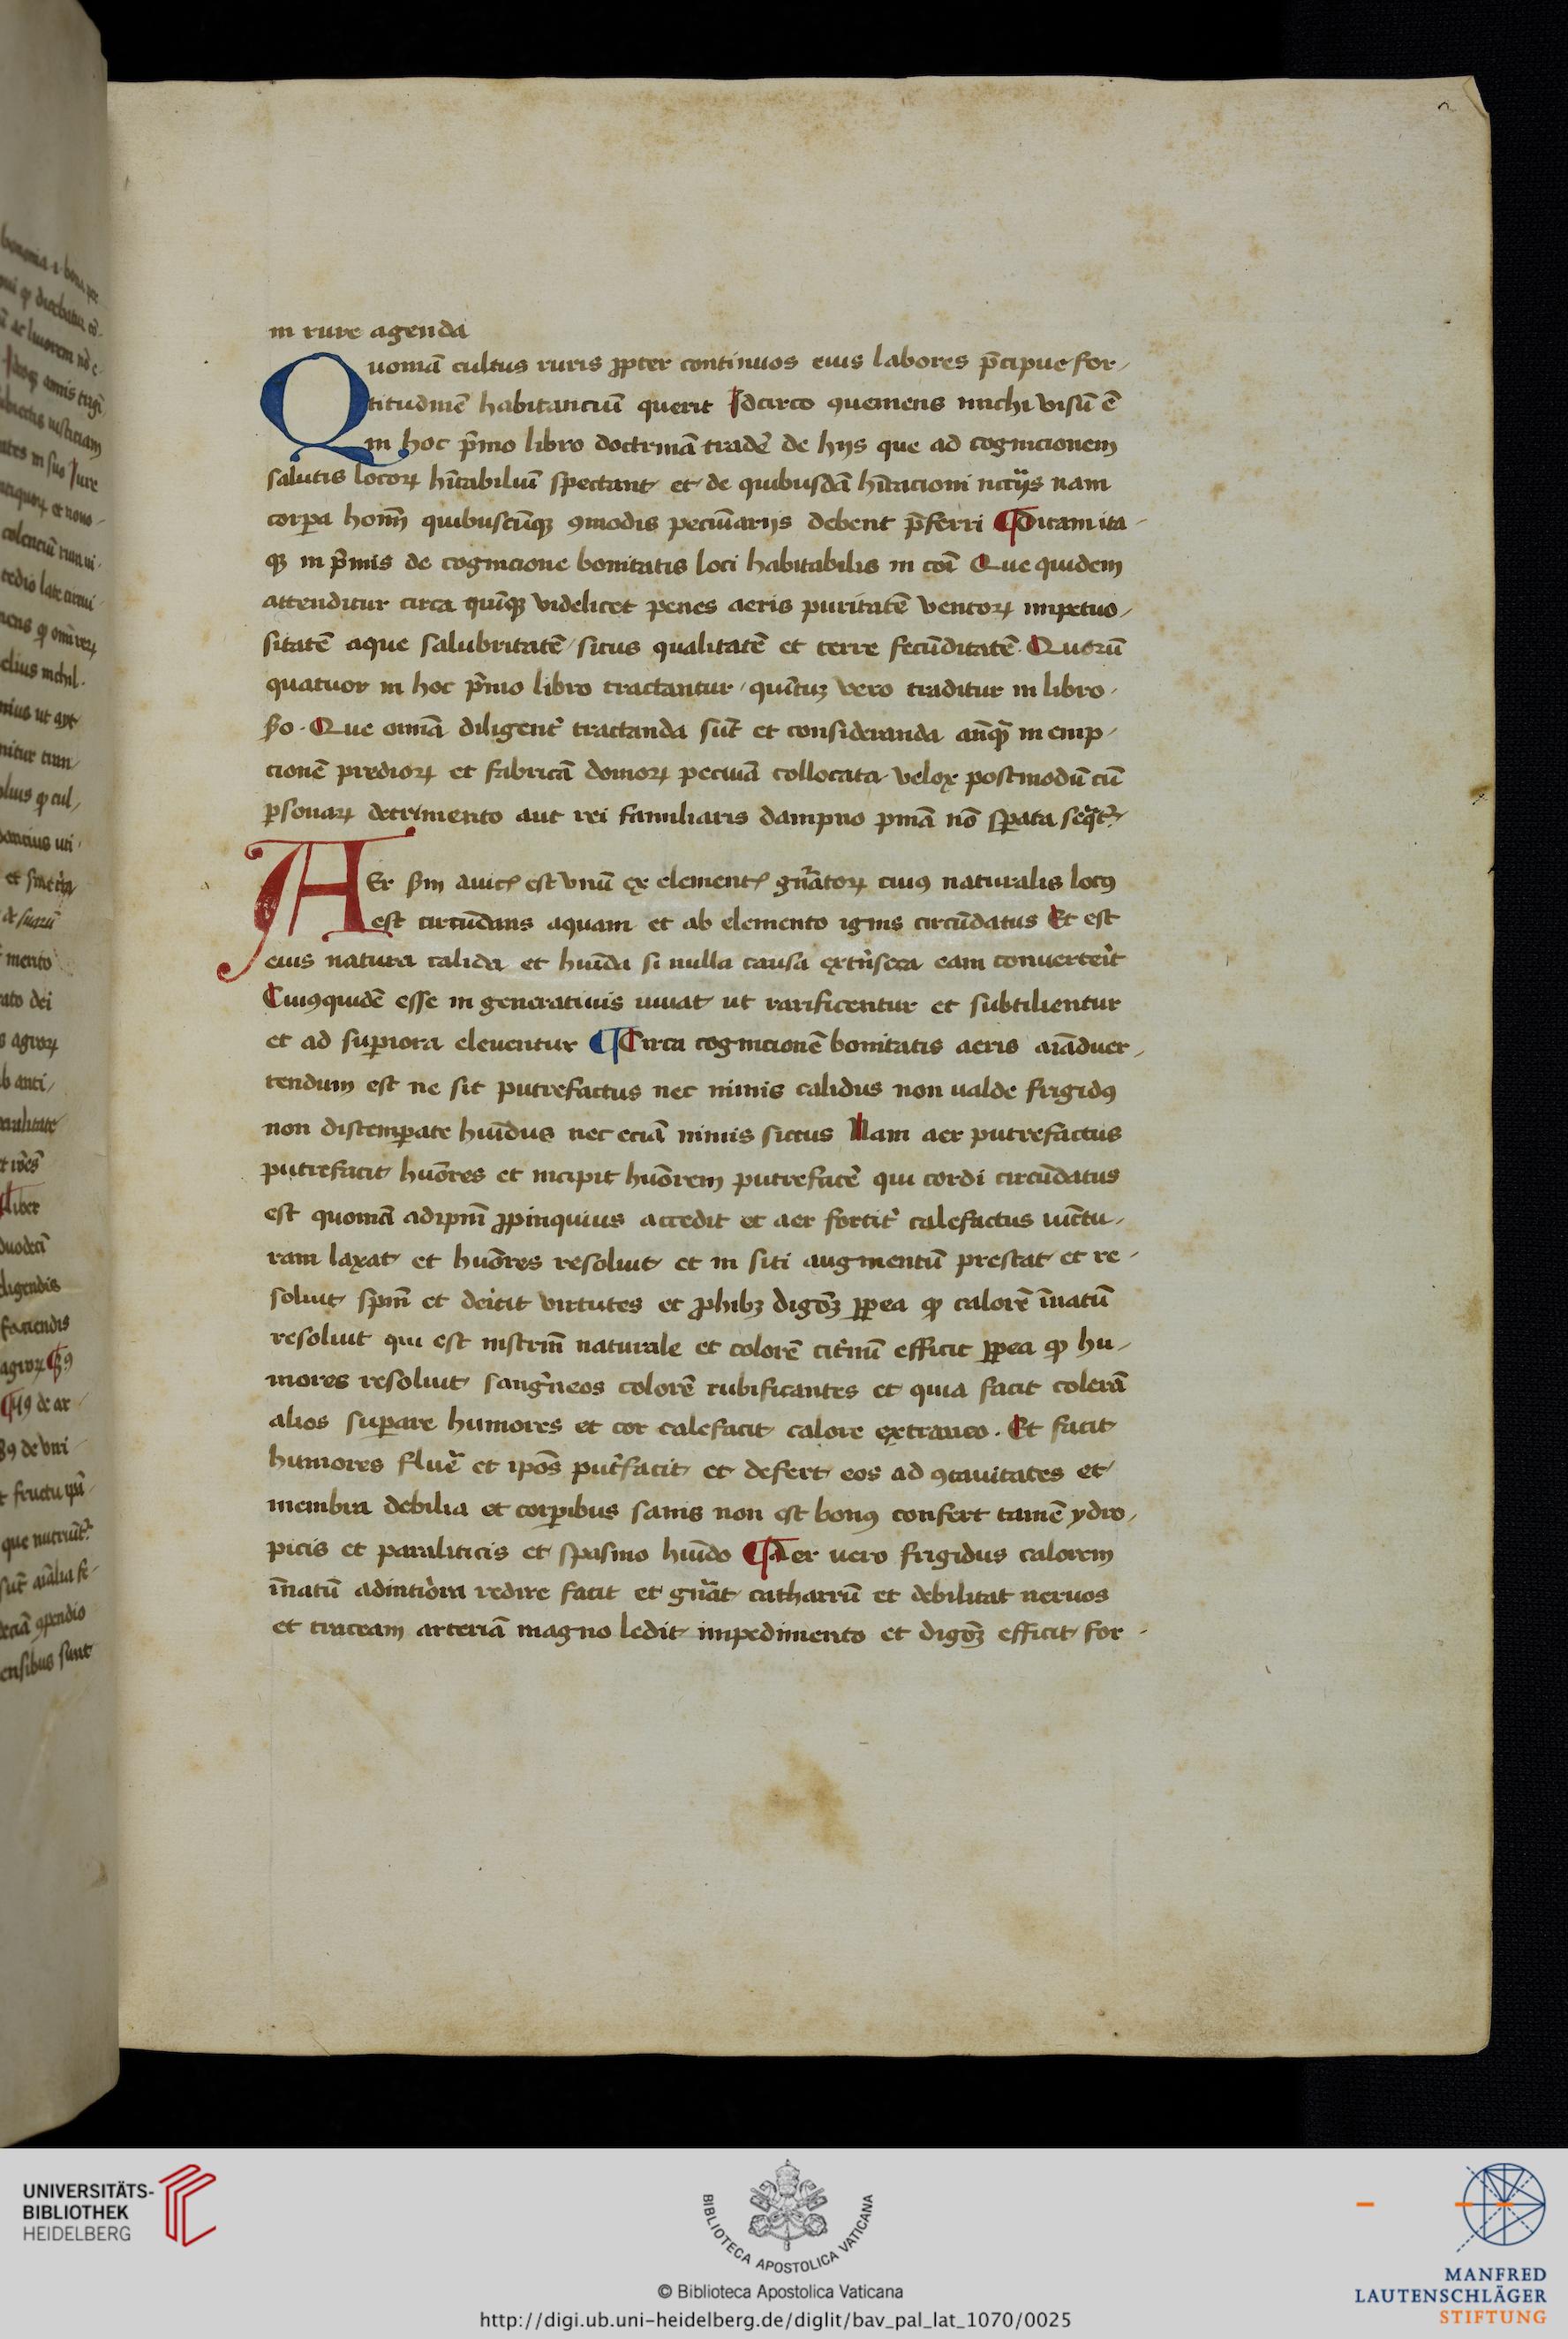 in rure agenda
Quoniā cultus ruris ꝓpter continuos eius labores p̄cipue for-
titudinē habitanciū querit Idcirco ꝯueniens michi visū ē
in hoc p̄mo libro doctrinā tradē de hijs que ad cognicionem
salutis locoꝝ hītabiliū spectant et de quibusdā hītacioni nccijs nam
corꝑa hoīm quibuscūqꝫ ꝯmodis pecuniarijs debent p̄ferri ¶ Dicam ita-
qꝫ in p̄mis de cognicione bonitatis loci habitabilis in coī Que quidem
attenditur circa quīqꝫ videlicet penes aeris puritatē ventoꝝ impetuo-
sitatē aque salubritatē / situs qualitatē et terre fecūditatē. Quorū
quatuor in hoc p̄mo libro tractantur / quītuꝫ vero traditur in libro
ẜo. Que omīa diligent̄ tractanda sūt et consideranda an̄qꝫ in emp-
cionē predioꝝ et fabricā domoꝝ pecuīa collocata velox postmodū cū
ꝑsonaꝝ detrimento aut rei familiaris dampno pnīa nō sꝑata seq̄t̄r
Aer ẜm auicē est vnū ex elementꝭ gn̄atoꝝ cuiꝯ naturalis locꝯ
est circūdans aquam et ab elemento ignis circūdatus Et est
eius natura calida et huīda si nulla causa extr̄seca eam conuerterit
Cuiꝯquidē esse in generatiuis iuuat ut rarificentur et subtilientur
et ad suꝑiora eleuentur ¶ Circa cognicionē bonitatis aeris aīaduer-
tendum est ne sit putrefactus nec nimis calidus non ualde frigidꝯ
non distemꝑate huīdus nec eciā nimis siccus Nam aer putrefactus
putrefacit huōres et incipit huōrem putrefacē qui cordi circūdatus
est quoniā adip̄m ꝓpinquius accedit et aer fortit̄ calefactus iūctu-
ram laxat et huōres resoluit et in siti augmentū prestat et re-
soluit sp̄m et deicit virtutes et ꝓhibꝫ digōꝫ ꝓpea qꝫ calorē īnatū
resoluit qui est instrm̄ naturale et colorē citrinū efficit ꝓpea qꝫ hu-
mores resoluit sang̍neos colorē rubificantes et quia facit colerā
alios suꝑare humores et cor calefacit calore extraneo. Et facit
humores fluē et ipōs put̄facit et defert eos ad ꝯcauitates et
membra debilia et corꝑibus sanis non est bonꝯ confert tamē ydro-
picis et paraliticis et spasmo huīdo ¶ Aer uero frigidus calorem
īnatū adinteriora redire facit et gn̄at catharrū et debilitat neruos
et traceam arteriā magno ledit impedimento et digōꝫ efficit for-
UNIVERSITÄTS-
BIBLIOTHEK
HEIDELBERG
BIBLIOTECA APOSTOLICA VATICANA
© Biblioteca Apostolica Vaticana
http://digi.ub.uni-heidelberg.de/diglit/bav_pal_lat_1070/0025
MANFRED
LAUTENSCHLÄGER
STIFTUNG